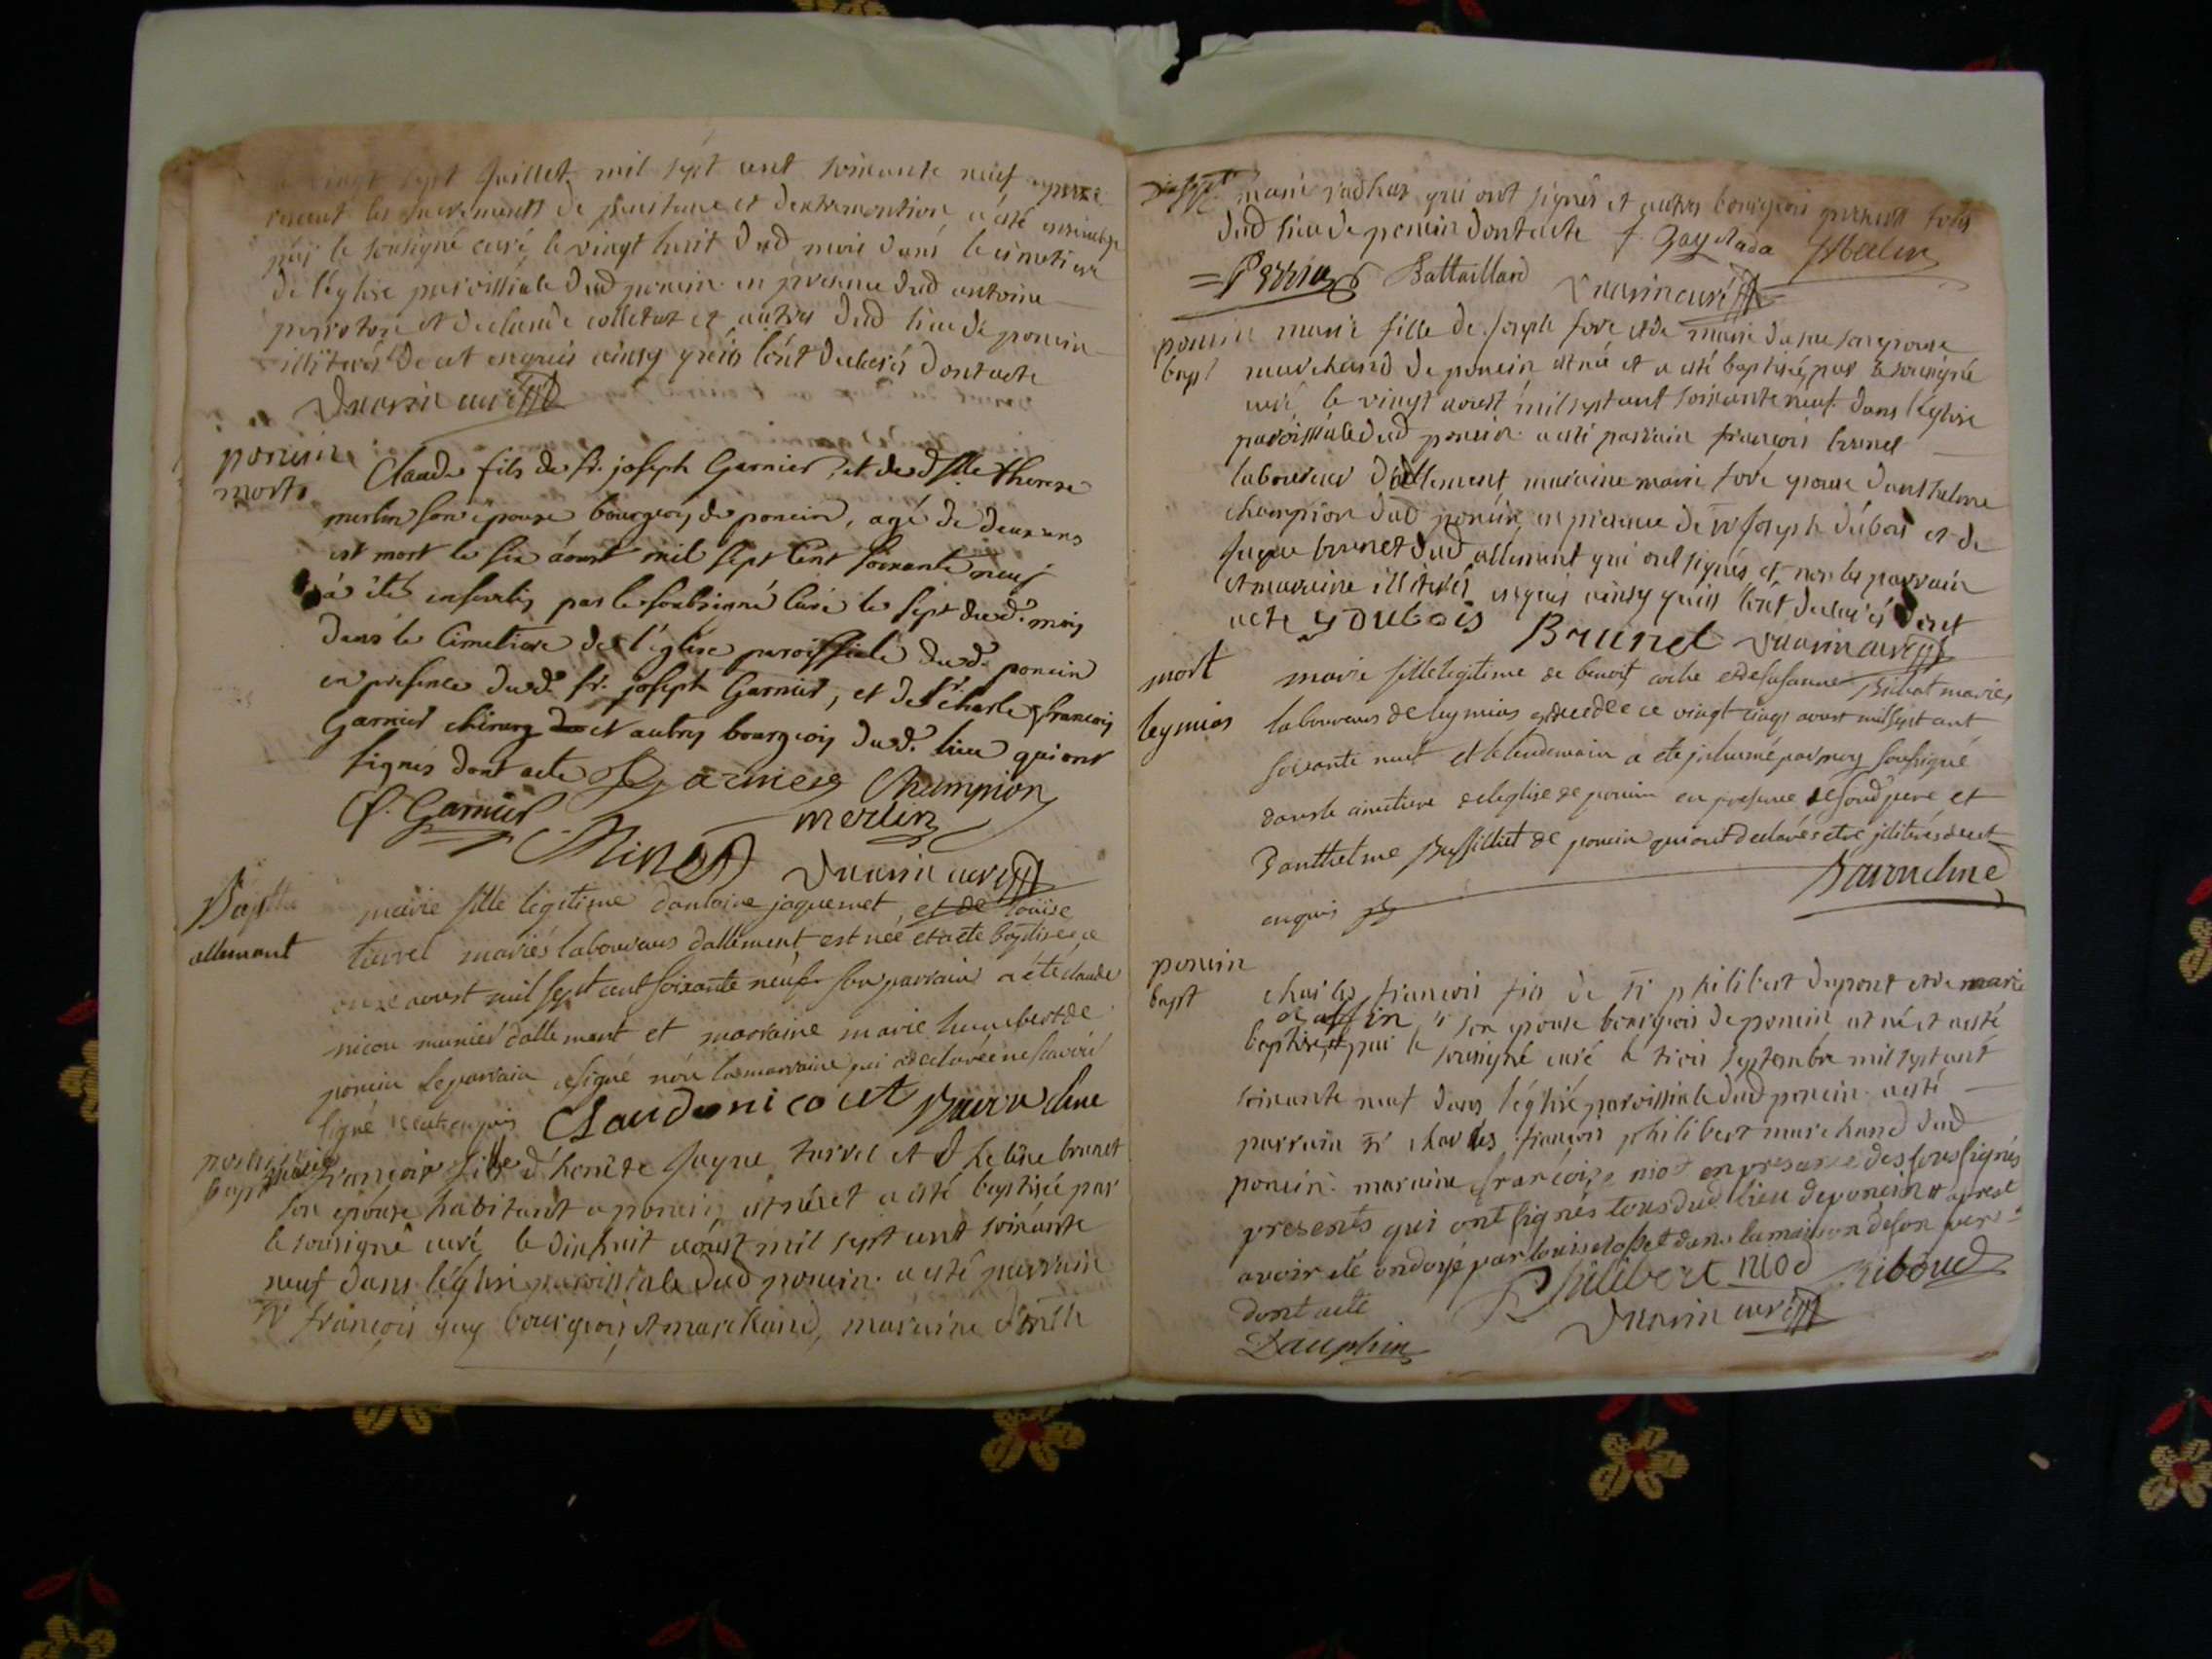 vingt sept Juillet mil sept cent soixante neuf apres
receut les sacrements de penitence et dextremontion a esté
par le sousigné curé le vingt huit dud mois dans le cimetiere
de léglise paroissiale dud poncin en presence dud antoine
perroton et de claude colletat et autres dud lieu de poncin
illiteres de ce enquis ainsy quils lont declarés dont acte
curé
poncin
mort
Claude fils de sr. joseph Garnier, et de dslle. therese
merlin son épouse bourgeois de poncin, agé de deux ans
est mort le six àoust mil sept cent soixante neuf
à été enseveli par le soubsigné Curé le sept dud. mois
dans le Cimetiere de l'église paroissiale dud. poncin
en presence dud. sr. joseph Garnier, et de sr. charle françois
Garnier chirurg et autres bourgeois dud. lieu qui ont
signés dont acte Garnier Champion
f. Garnier merlin
curé
Bapt
allemant
marie fille légitime dantoine jaquemet, et de louise
turrel mariés laboureurs dallement est neé et a eté baptisée ce
onze aoust mil sept cent soixante neuf son parrain a été claude
nicou munier dallemant et marraine marie humbert de
poncin le parrain a signé non la marraine qui a declarée ne scavoir
signé de ce enquis Claude nicout
poncin
bapt
françoise fille d'honête Jaque turrel et d helene brunet
son epouse habitant a poncin, est néé et a esté baptisée par
le sousigné curé le dixhuit aoust mil sept cent soixante
neuf dans léglise paroissiale dud poncin. a esté parrain
sr françois gay bourgeois et marchand, maraine
marie qui ont signés et autres bourgeois presents tous
dud lieu de poncin dont acte f. Gay
Perrin Battaillard curé
poncin
bapt
marie fille de Joseph fore et de marie son epouse
marchand de poncin est née et a esté baptisée, par le sousigné
curé le vingt aoust mil sept cent soixante neuf dans léglise
paroissiale dud poncin. a esté parrain françois brunet
laboureur dallement, maraine marie fore epouse danthelme
champion dud poncin, en presence de sr Joseph dubois et de
Jaque brunet dud allement qui ont signés et non les parrain
et maraine illiterés enquis ainsy quils lont declarés dont
acte J Dubois Brunet curé
mort
leymias
marie fille legitime de benoit et de susanne mariés
laboureurs de leymias est decedée ce vingt cinq aoust mil sept cent
soixante neuf et le lendemain a ete jnhumé par moy soussigné
dans le cimetiere de leglise de poncin en presence de sond pere et
danthelme de poncin qui ont declarés etre jlliterés de cet
enquis
poncin
bapt
charles françois fils de sr philibert dupont et de marie
son epouse bourgeois de poncin est né et a esté
baptisé, par le sousigné curé le trois septembre mil sept cent
soixante neuf dans léglise paroissiale dud poncin. a esté
parrain sr charles françois philibert marchand dud
poncin. maraine françoise niod en presence des sousignés
presents qui ont signés tous dud lieu de poncin apres
avoir eté ondoyé par louise dans la maison de son pere
dont acte Philibert niod Riboud
Dauphin curé